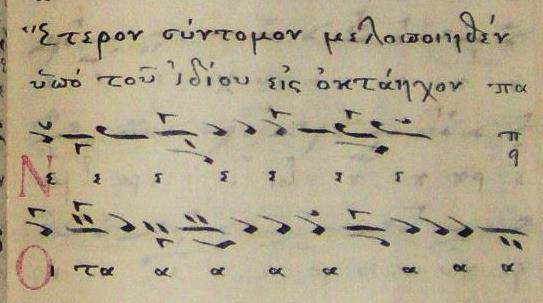 Ἕτερον σύντομον μελοποιηθέν
ὑπὸ τοῦ ἰδίου εἰς ὀκτάηχον πα
π
q
Ν ε ε ε ε ε ε ε
Ο ι τα α α α α α α α